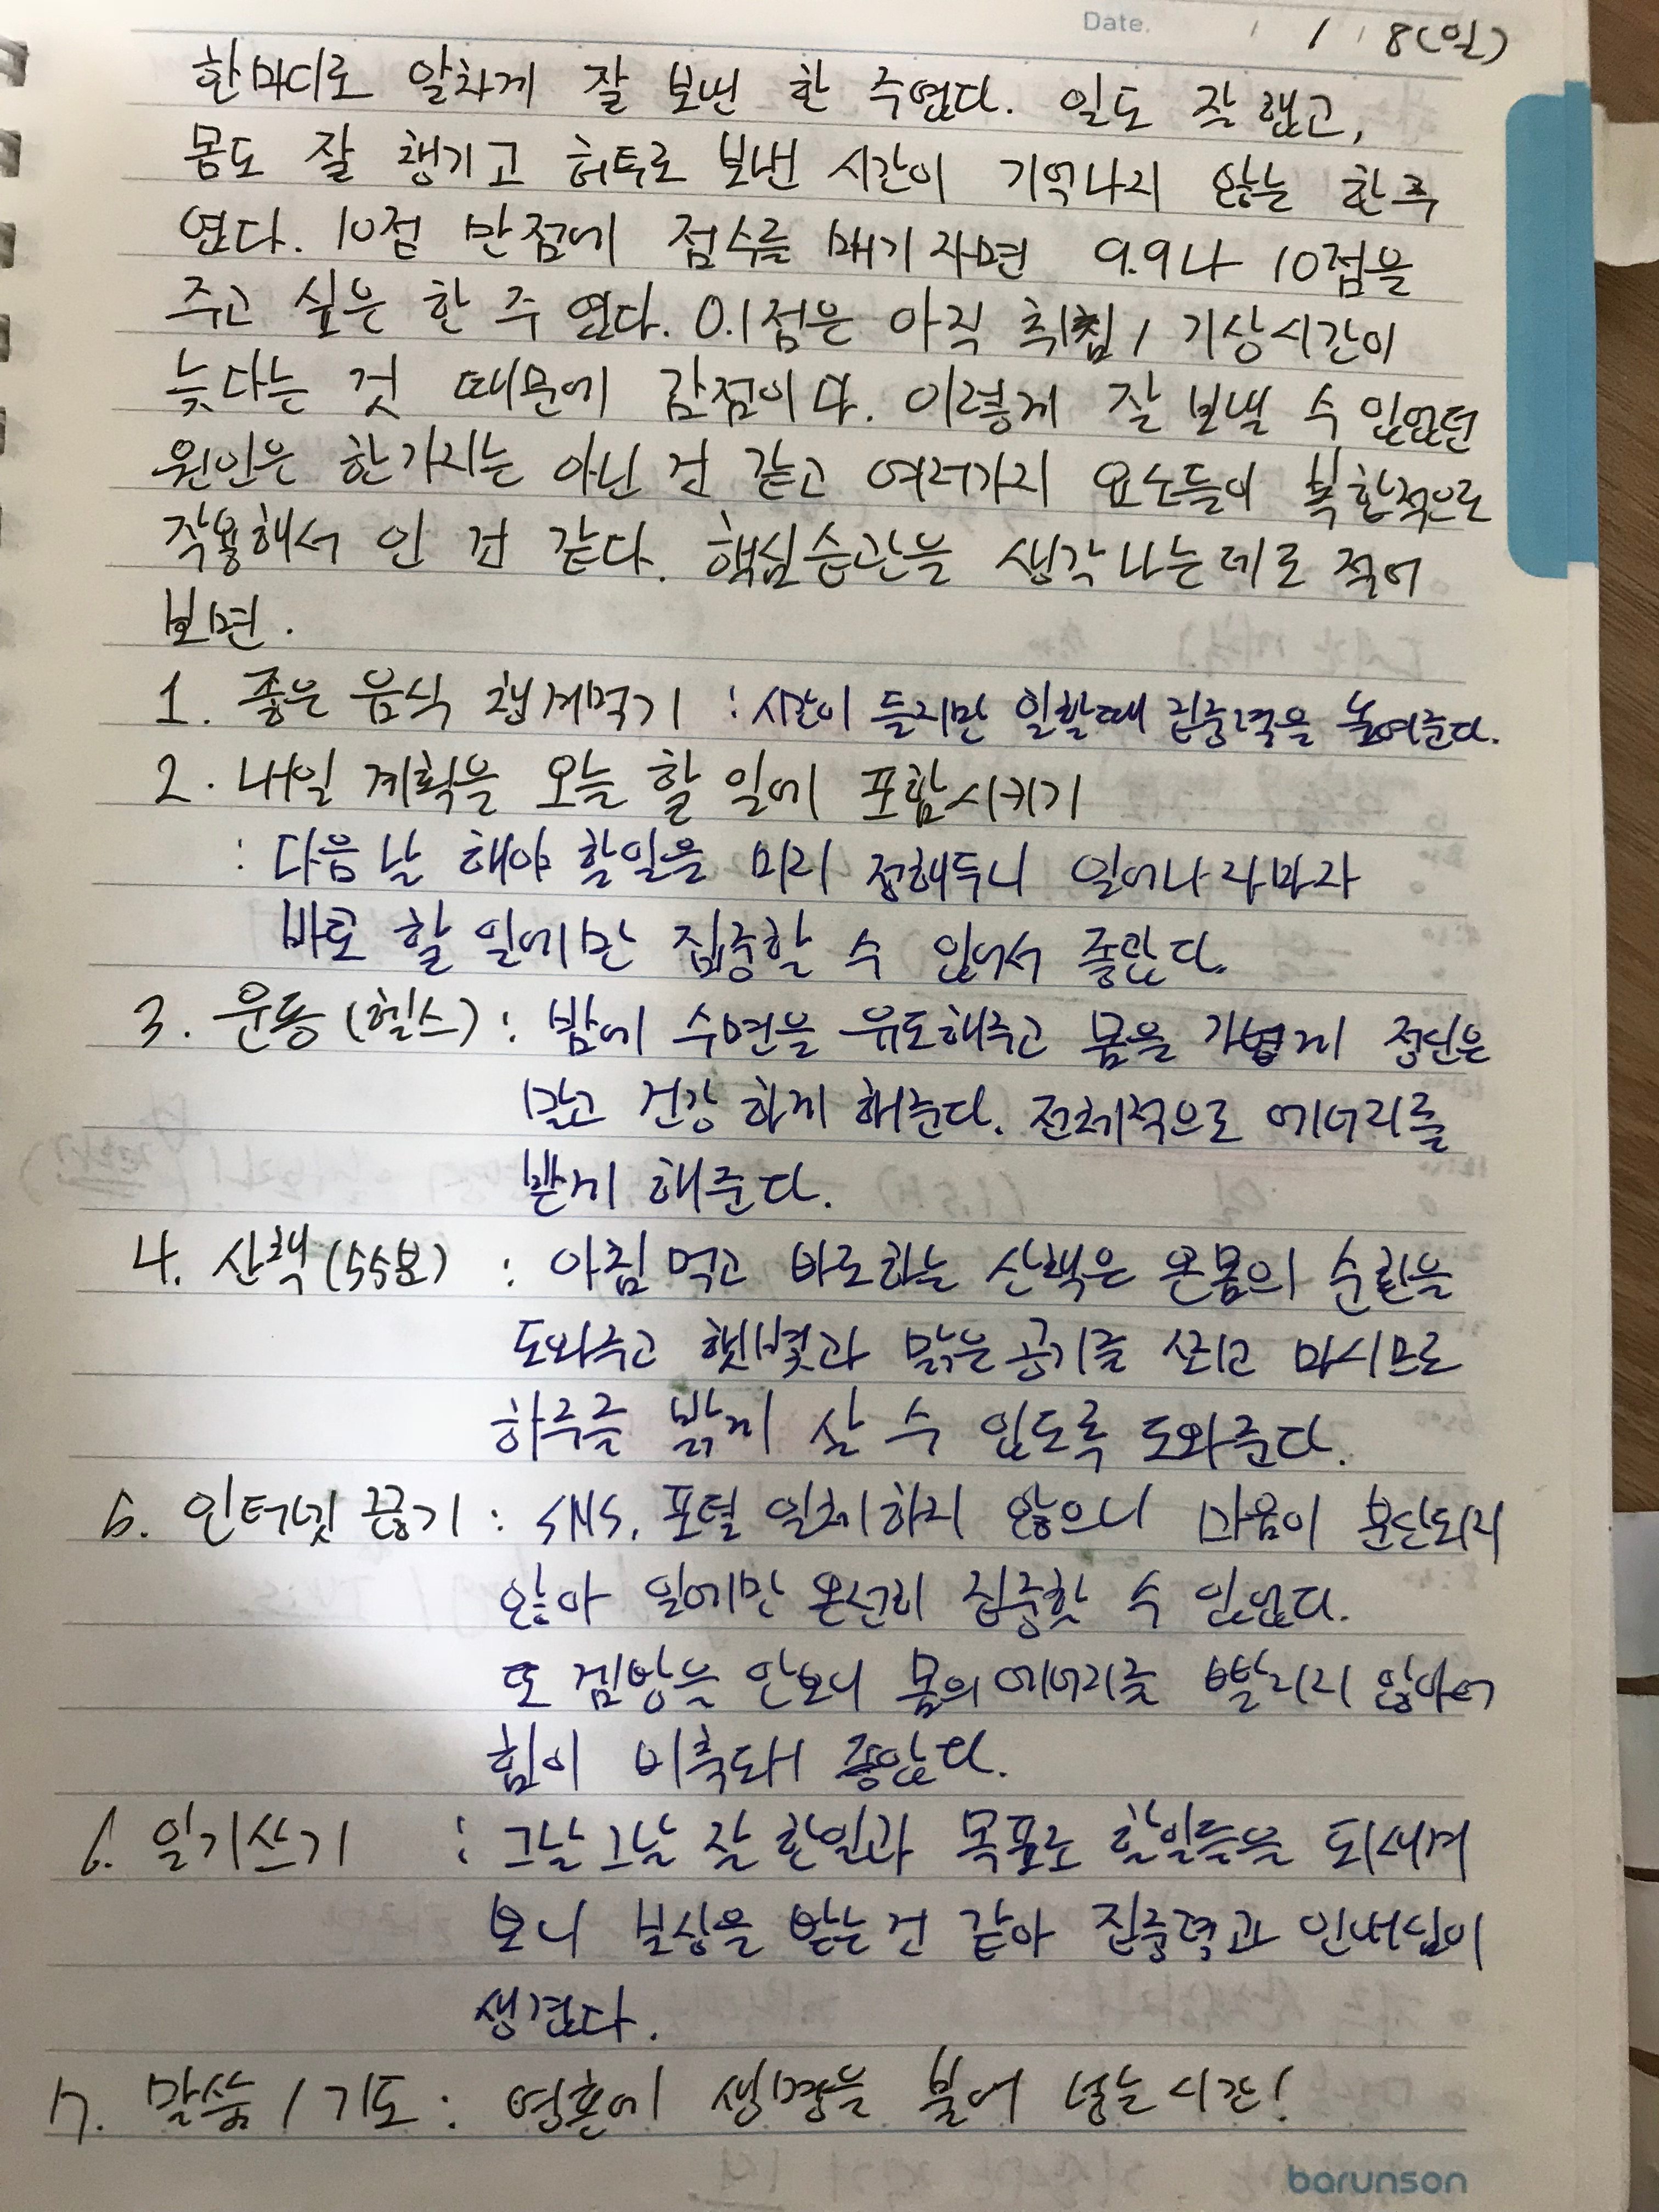 Date. / / 8(일)
한마디로 알차게 잘 보낸 한 주였다. 일도 잘 했고,
몸도 잘 챙기고 허투로 보낸 시간이 기억나지 않는 한주
였다. 10점 만점에 점수를 매기자면 9.9나 10점을
주고 싶은 한 주 였다. 0.1점은 아직 취침/기상시간이
늦다는 것 때문에 감점이다. 이렇게 잘 보낼 수 있었던
원인은 한가지는 아닌 건 같고 여러가지 요소들이 복합적으로
작용해서 인 건 같다. 핵심습관을 생각나는데로 적어
보면.
1. 좋은 음식 챙겨먹기 : 시간이 들지만 일할때 집중력을 높여준다.
2. 내일 계획을 오늘 할 일에 포함시키기
: 다음날 해야 할일을 미리 정해두니 일어나자마자
바로 할 일에만 집중할 수 있어서 좋았다.
3. 운동(헬스) : 밤에 수면을 유도해주고 몸을 가볍게 정신은
맑고 건강하게 해준다. 전체적으로 에너지를
받게 해준다.
4. 산책(55보) : 아침먹고 바로하는 산책은 온몸의 순환을
도와주고 햇볓과 맑은공기를 쐬고 마시므로
하루를 밝게 살 수 있도록 도와준다.
5. 인터넷 끊기 : SNS, 포털 일체하지 않으니 마음이 분산되지
않아 일에만 온전히 집중할 수 있었다.
또 겜방을 안보니 몸의 에너지를 빨리지 않아서
힘이 비축돼 좋았다.
6. 일기쓰기 : 그날그날 잘 한일과 목표로 할일들을 되새겨
보니 보상을 받는건 같아 집중력과 인내심이
생겼다.
7. 말씀/기도 : 영혼에 생명을 불어 넣는시간!
barunson